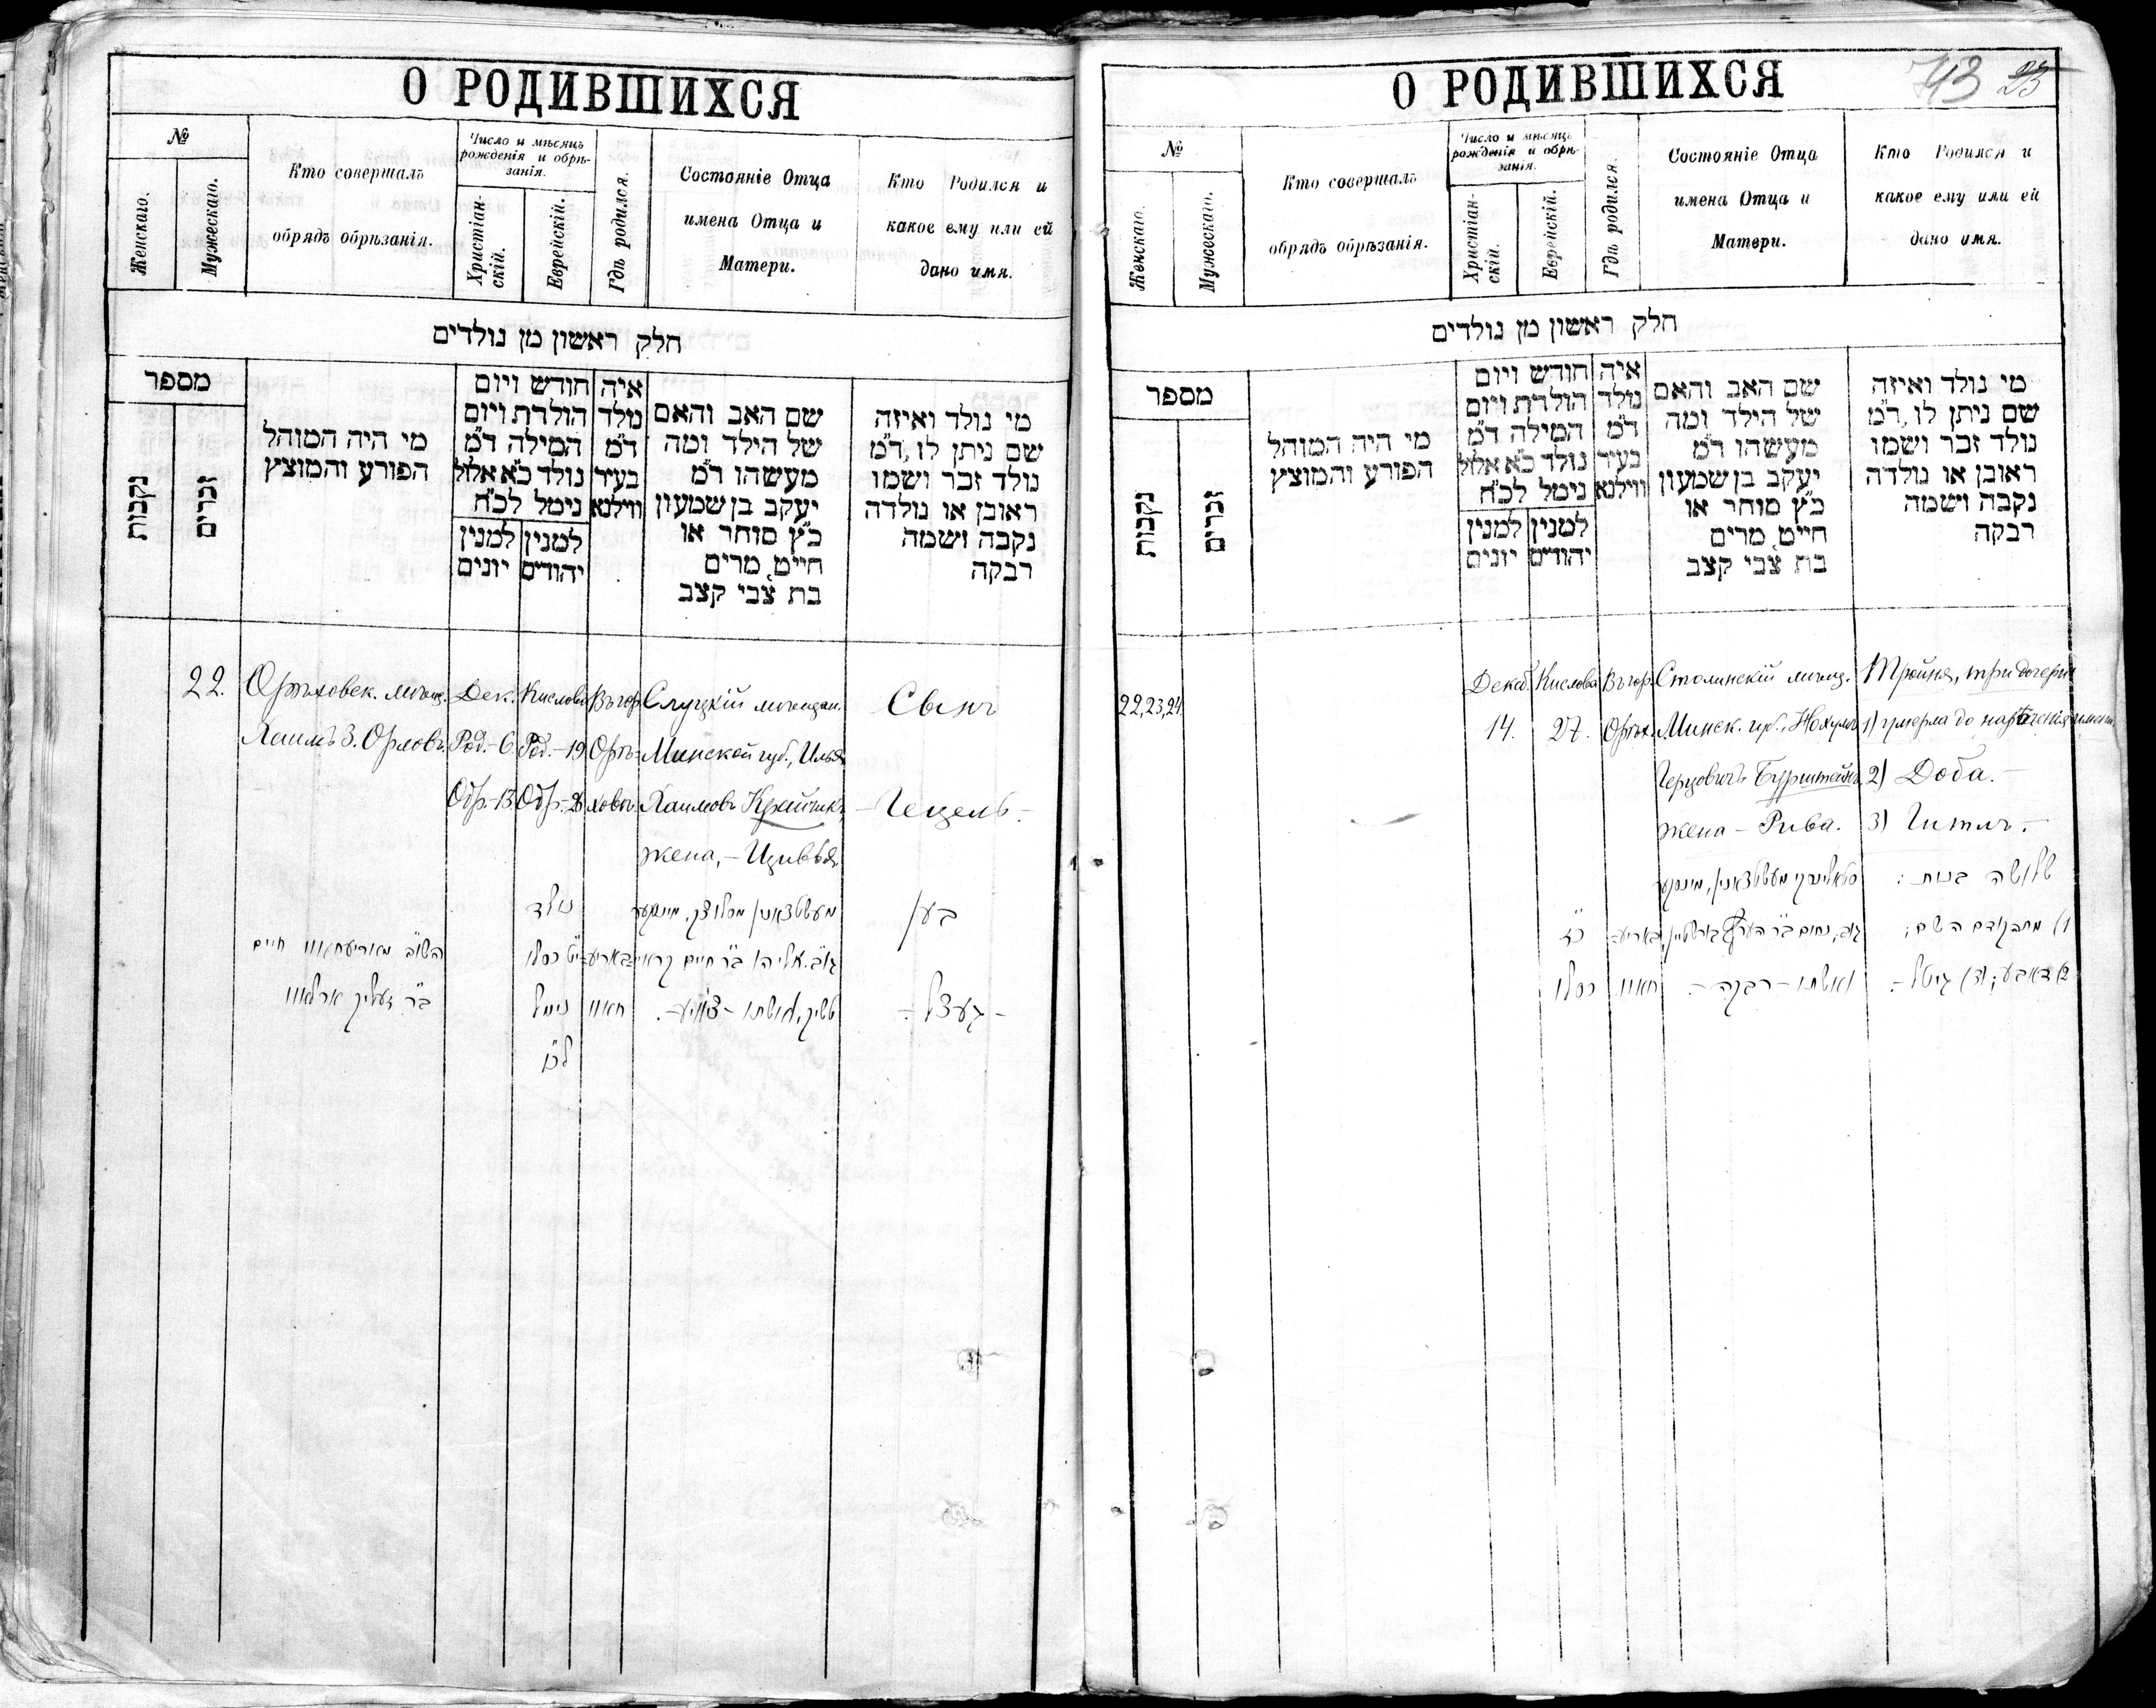 О РОДИВШИХСЯ
№
Женскаго.
Мужескаго.
Кто совершалъ
обрядъ обрѣзанія.
Число и мѣсяцъ
рожденія и обрѣ-
занія.
Христіан-
скій.
Еврейскій.
Гдѣ родился.
Состояніе Отца
имена Отца и
Матери.
Кто Родился и
какое ему или ей
дано имя.
חלק ראשון מן נולדים
מספר
נקבות
זכרים
מי היה המוהל
הפורע והמוצץ
חודש ויום
הולדת ויום
המילה ד״מ
נולד כ״א אלול
נימל לכ״ח
למנין
יהודים
למנין
יונים
איה
נולד
ד״מ
בעיר
ווילנא
שם האב והאם
של הילד ומה
מעשהו ד״מ
יעקב בן שמעון
כ״ץ סוחר או
חייט, מרים
בת צבי קצב
מי נולד ואיזה
שם ניתן לו, ד״מ
נולד זכר ושמו
ראובן או נולדה
נקבה ושמה
רבקה
22.
Орѣховск. мѣщ.
Хаимъ З. Орловъ.
Дек.
Род.-6
Обр-13
Кислова
Род.-19
Обр.-26
Въ гор.
Орѣ-
ховѣ.
Слуцкій мѣщан.
Минской губ., Илья
Хаимовъ Крайчикъ,
жена, - Цивья.
Сынъ
- Гецель -
השו״ב מאריעחאוו חיים
ב״ר זעליק ארלאוו
נולד
י״ט כסלו
נימל
לכ״ו
באריע-
חאוו
מעשטצאנין מסלוצק, מינסקער
גוב. אליהו ב״ר חיים קראיי-
טשיק, ואשתו - צוויע -.
בען
- געצל -
О РОДИВШИХСЯ
43 23
№
Женскаго.
Мужескаго.
Кто совершалъ
обрядъ обрѣзанія.
Число и мѣсяцъ
рожденія и обрѣ-
занія.
Христіан-
скій.
Еврейскій.
Гдѣ родился.
Состояніе Отца
имена Отца и
Матери.
Кто Родился и
какое ему или ей
дано имя.
חלק ראשון מן נולדים
מספר
נקבות
זכרים
מי היה המוהל
הפורע והמוצץ
חודש ויום
הולדת ויום
המילה ד״מ
נולד כ״א אלול
נימל לכ״ח
למנין
יהודים
למנין
יונים
איה
נולד
ד״מ
בעיר
ווילנא
שם האב והאם
של הילד ומה
מעשהו ד״מ
יעקב בן שמעון
כ״ץ סוחר או
חייט, מרים
בת צבי קצב
מי נולד ואיזה
שם ניתן לו, ד״מ
נולד זכר ושמו
ראובן או נולדה
נקבה ושמה
רבקה
22,23,24
Декаб.
14.
Кислова
27.
Въ гор.
Орѣх.
Столинскій мѣщ.
Минск. губ., Нохумъ
Герцовичъ Бурштейнъ,
жена - Рива.
Тройня, три дочери
1) умерла до нареченія имени
2) Доба. -
3) Гитль. -
כ״ז
כסלו
באריע-
חאוו
סטאלינסקי מעשטצאנין, מינסקער
גוב, נחום ב״ר הערץ בורשטיין,
ואשתו - רבקה -.
שלושה בנות :
1) מתה קודם השם;
2) דאבע; 3) גיטל -.